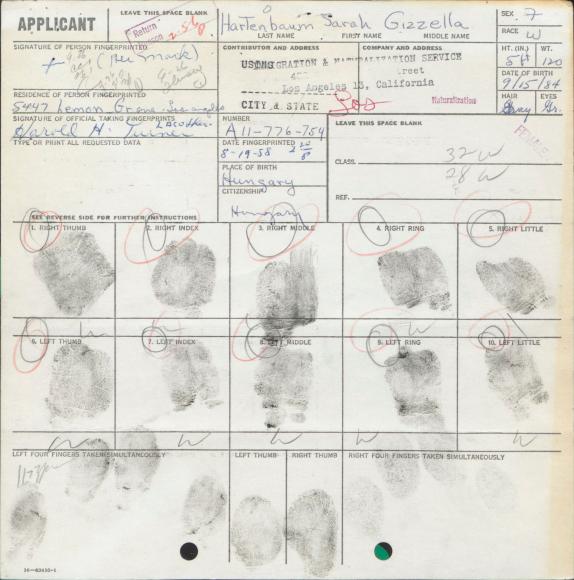 APPLICANT
LEAVE THIS SPACE BLANK
Return
Hartenbaum Sarah Gizzella
LAST NAME FIRST NAME MIDDLE NAME
SEX F
RACE W
SIGNATURE OF PERSON FINGERPRINTED
(Her Mark)
CONTRIBUTOR AND ADDRESS
COMPANY AND ADDRESS
IMMIGRATION & NATURALIZATION SERVICE
Los Angeles 13, California
CITY & STATE
Naturalization
HT. (IN.) WT.
5ft 120
DATE OF BIRTH
9/15/84
HAIR EYES
Gray Gr.
RESIDENCE OF PERSON FINGERPRINTED
5447 Lemon Grove Los Angeles
SIGNATURE OF OFFICIAL TAKING FINGERPRINTS
Harold H. Turner
NUMBER
A11-776-754
TYPE OR PRINT ALL REQUESTED DATA
DATE FINGERPRINTED
8-19-58
PLACE OF BIRTH
Hungary
CITIZENSHIP
Hungary
LEAVE THIS SPACE BLANK
FEMALE
CLASS.
32 W
28 W
REF.
SEE REVERSE SIDE FOR FURTHER INSTRUCTIONS
1. RIGHT THUMB
2. RIGHT INDEX
3. RIGHT MIDDLE
4. RIGHT RING
5. RIGHT LITTLE
6. LEFT THUMB
7. LEFT INDEX
8. LEFT MIDDLE
9. LEFT RING
10. LEFT LITTLE
W W W W W
LEFT FOUR FINGERS TAKEN SIMULTANEOUSLY
LEFT THUMB
RIGHT THUMB
RIGHT FOUR FINGERS TAKEN SIMULTANEOUSLY